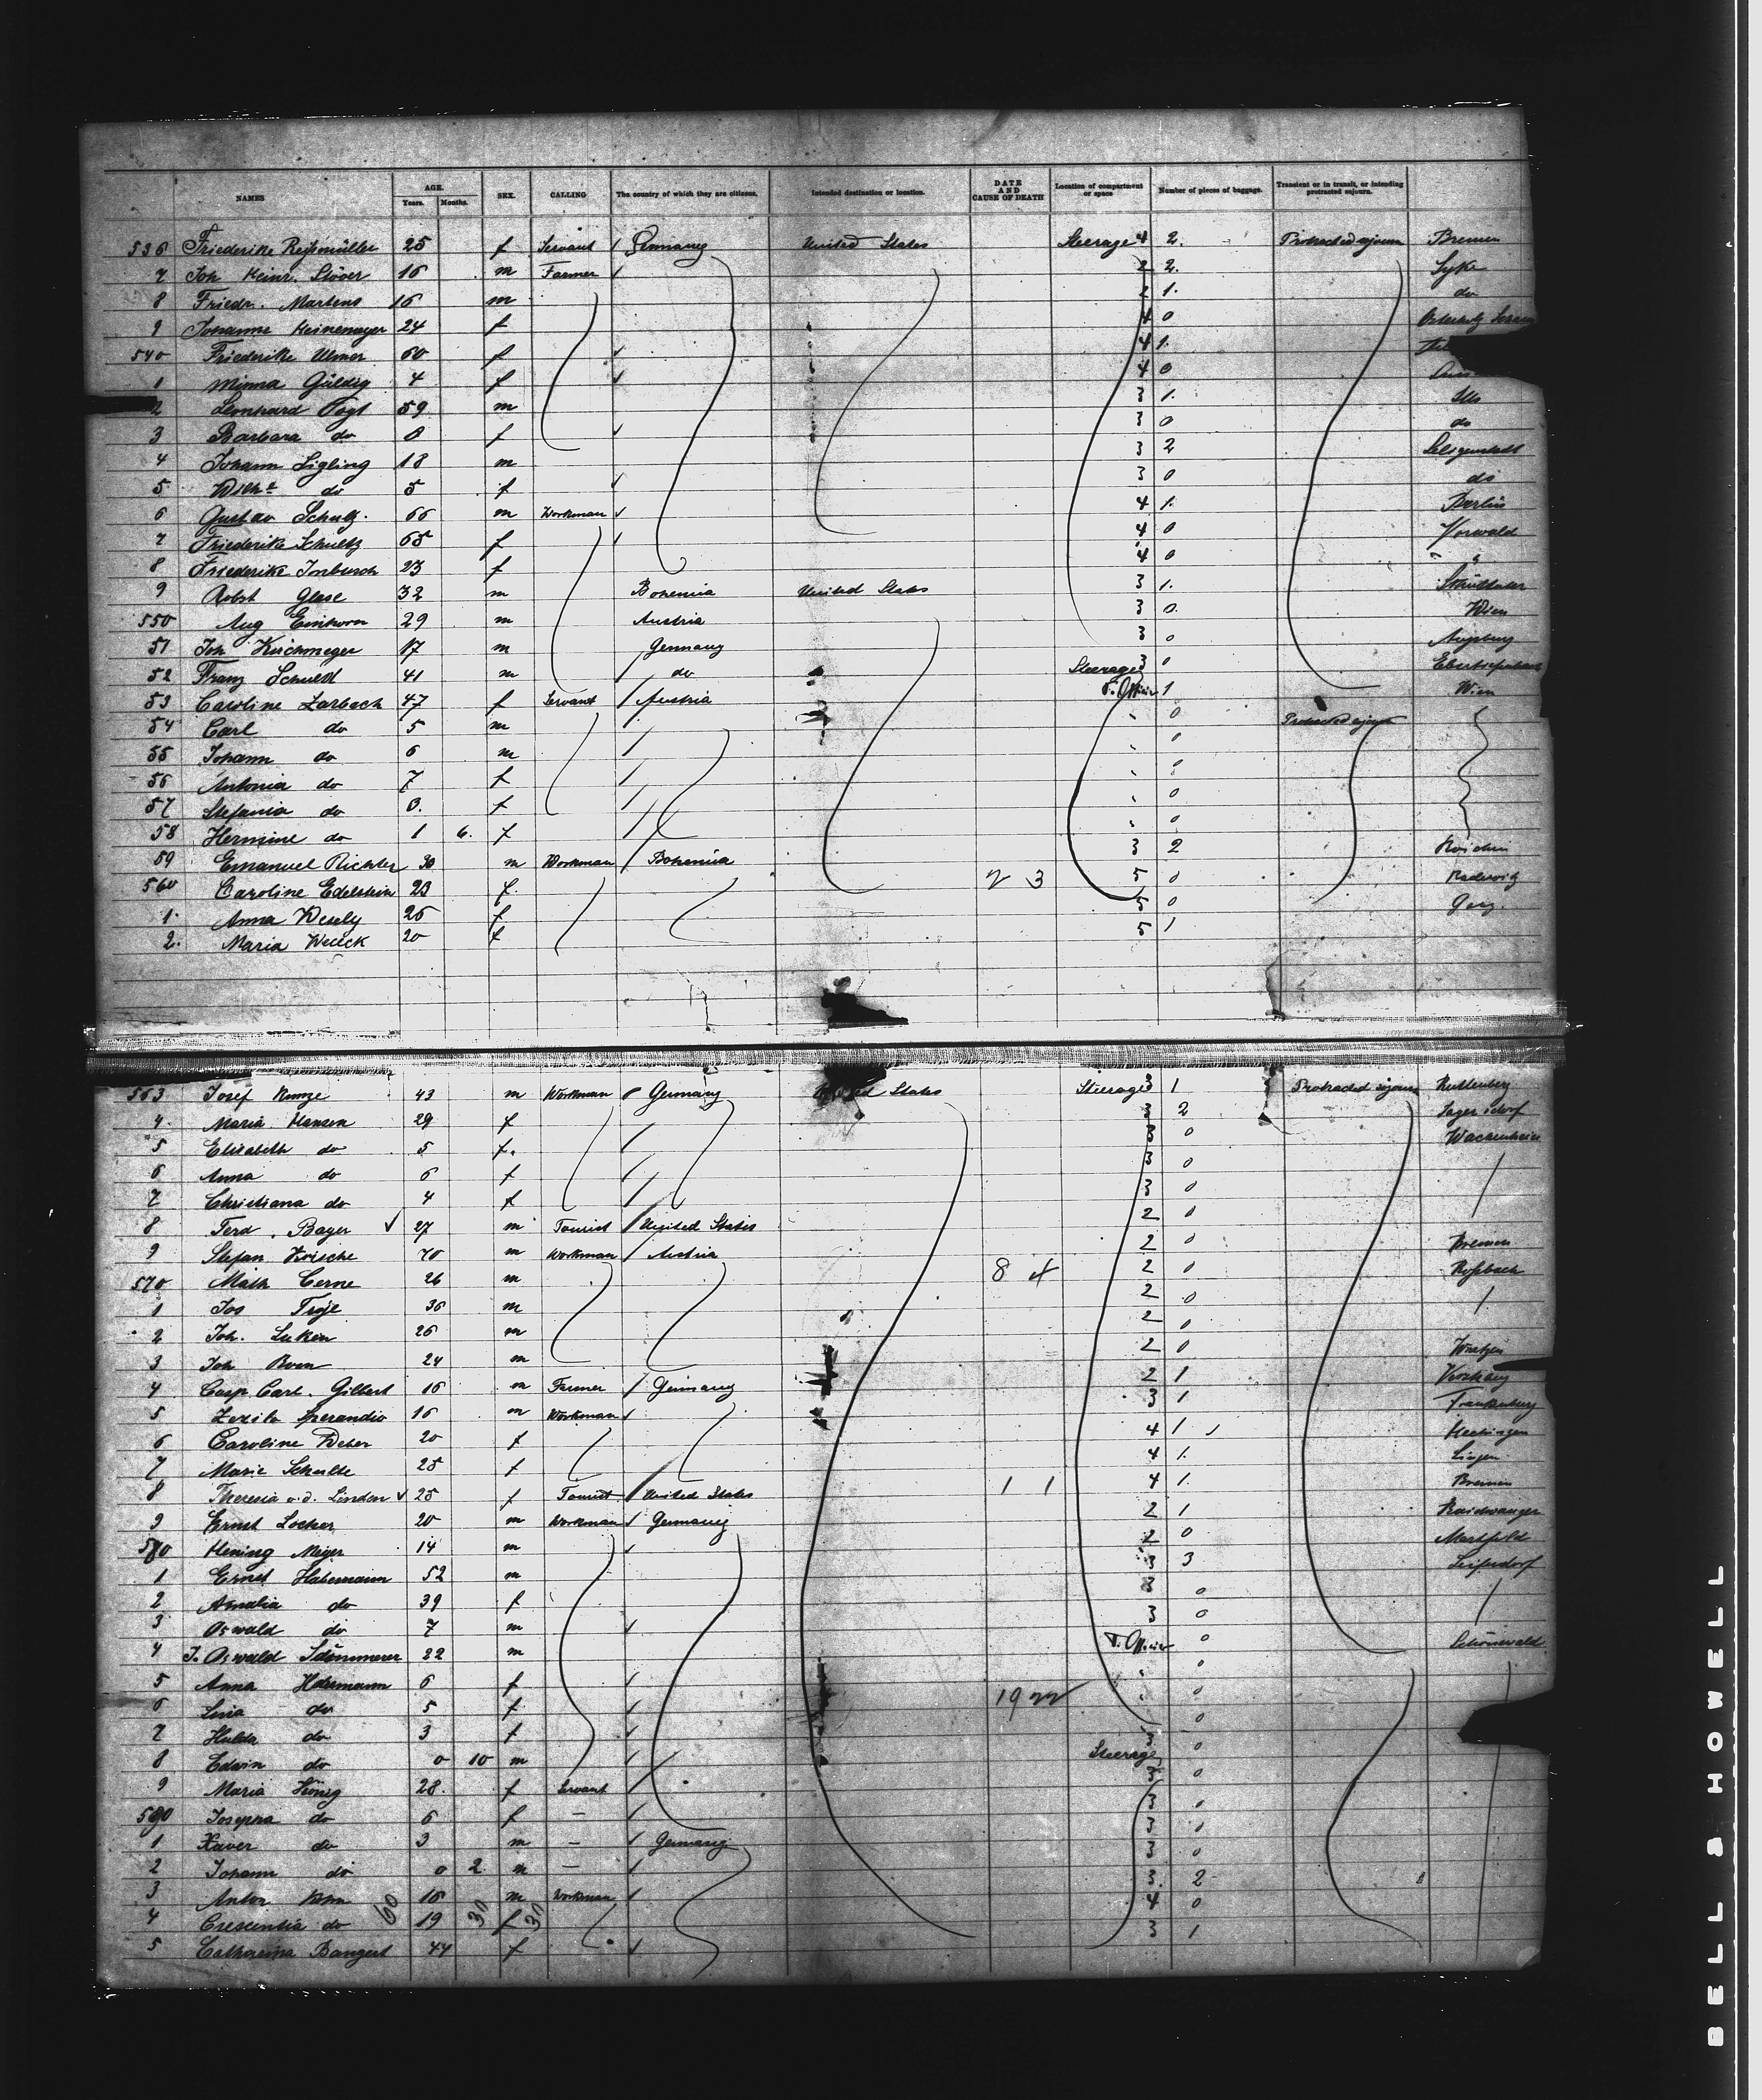 NAMES AGE. Years. Months. SEX. CALLING The country of which they are citizens. Intended destination or location. DATE AND CAUSE OF DEATH Location of compartment or space Number of pieces of baggage. Transient or in transit, or intending protracted sojourn.
536 Friederike 25 f Servant / Germany United States Steerage 4 2. Protracted sojourn Bremen
7 Joh. Heinr. Stöver 16 m Farmer / 2 2. Syke
8 Friedr. Martens 16 m 2 1. do
9 Johanne Heinemeyer 24 f 4 0
540 Friederike Ulmer 60 f 4 1.
1 Minna Güldig 4 f 4 0
2 Leonhard Vogt 59 m 3 1.
3 Barbara do 8 f 3 0 do
4 Johann Sigling 18 m 3 2
5 do 5 f 3 0 do
6 Gustav Schultz 66 m Workman 4 1. Berlin
7 Friederike Schultz 65 f 4 0
8 Friederike Imbusch 23 f 4 0
9 Robt Glase 32 m Bohemia United States 3 1.
550 Aug Einhorn 29 m Austria 3 0. Wien
51 Joh Kirchmeger 17 m Germany 3 0 Augsburg
52 Franz Schuldt 41 m do Steerage 3 0
53 Caroline Zarbach 47 f Servant / Austria 1 Wien
54 Carl do 5 m 0 Protracted sojourn
55 Johann do 6 m 0
56 Antonia do 7 f 0
57 Stefania do f 0
58 Hermine do 1 6. f 0
59 Emanuel Richter 30 m Workman / Bohemia 3 2
560 Caroline Edelstein 23 f. 2 3 5 0
1. Anna Wesely 26 f 5 0
2. Maria 20 f 5 1
563 Josef Kunze 43 m Workman Germany United States Steerage 3 1 Protracted sojourn
4. Maria Hansen 29 f 3 2
5 Elisabeth do 5 f. 3 0 Wachenheim
6 Anna do 6 f 3 0
7 Christiana do 4 f 3 0
8 Ferd. Bayer 27 m Tourist / United States 2 0
9 Stefan 40 m Workman / Austria 2 0 Bremen
570 Math Cerne 26 m 8 4 2 0 Roßbach
1 Jos 36 m 2 0
2 Joh. 26 m 2 0
3 Joh 24 m 2 0
4 Casp. Carl. Gilbert 16 m Farmer / Germany 2 1
5 Sperandio 16 m Workman 3 1 Frankenberg
6 Caroline Weber 20 f 4 1 Hechingen
7 Marie Schulte 25 f 4 1. Lingen
8 Theresia v. d. Linden 25 f Tourist / United States 1 1 4 1. Bremen
9 Ernst Locher 20 m Workman Germany 2 1 Raidwangen
580 Hening Meyer 14 m 2 0 Martfeld
1 Ernst Habermann 52 m 3 3 Seifersdorf
2 Amalia do 39 f 3 0
3 Oswald do 7 m 3 0
4 J. Oswald 22 m 0 Schönwald
5 Anna Habermann 6 f 0
6 Lina do 5 f 19 22 0
7 Hulda do 3 f 3 0
8 Edwin do 0 10 m Steerage 0
9 Maria König 28. f Servant 3 0
590 Josepha do 6 f — 3 0
1 Xaver do 3 m — Germany 3 0
2 Johann do 0 2 m — 3 0
3 Anton 16 m Workman 3. 2
4 Crescentia do 60 19 30 f 30 4 0
5 Catharina Bangert 44 f 3 1
BELL & HOWELL